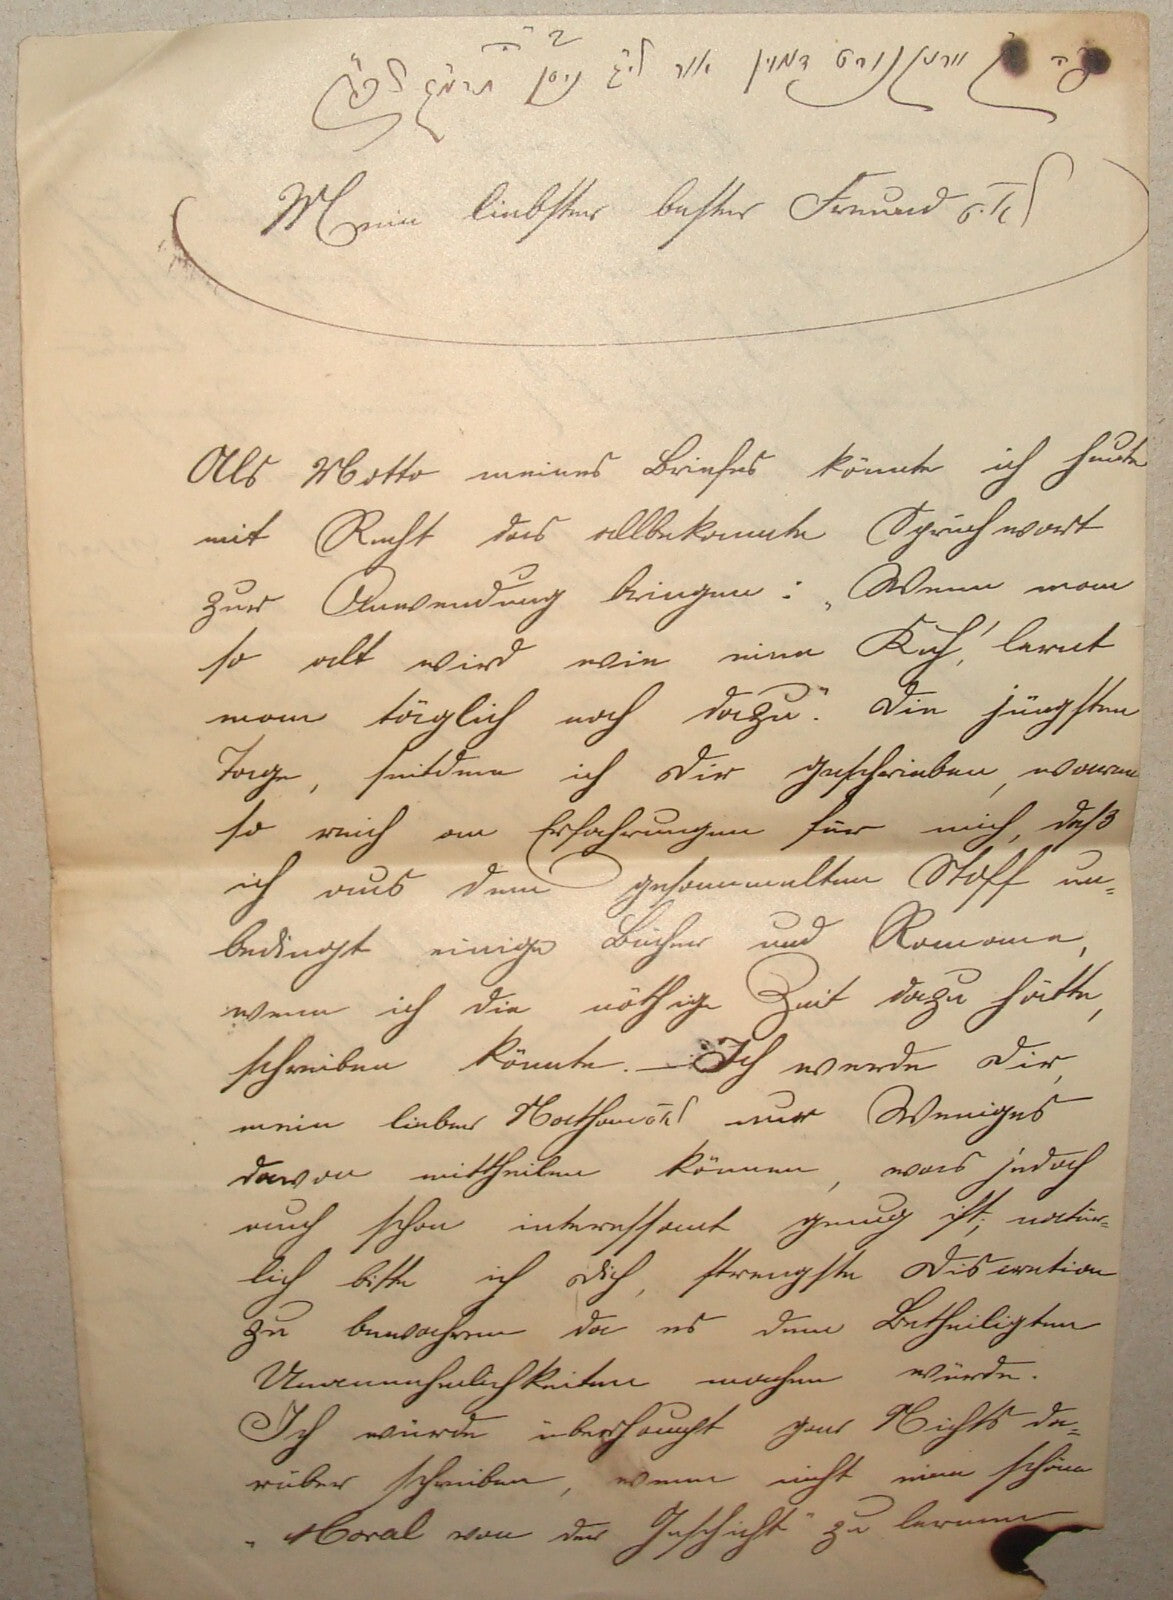 פרנקפורט דמיין אור לי"ג ניסן תרמ"ג לפ"ק
Mein liebster bester Freund
Als Motto meines Briefes könnte ich heute
mit Recht das allbekannte Sprüchwort
zur Anwendung bringen: „Wenn man
so alt wird wie eine Kuh, lernt
man täglich noch dazu". Die jüngsten
Tage, seitdem ich Dir geschrieben, waren
so reich an Erfahrungen für mich, daß
ich aus dem gesammelten Stoff un-
bedingt einige Bücher und Romane,
wenn ich die nöthige Zeit dazu hätte,
schreiben könnte. — Ich werde Dir,
mein lieber Nathan nur Weniges
davon mittheilen können, was jedoch
auch schon interessant genug ist; natür-
lich bitte ich Dich, strengste Discretion
zu bewahren da es dem Betheiligten
Unannehmlichkeiten machen würde.
Ich würde überhaupt gar Nichts da-
rüber schreiben, wenn nicht eine schöne
„Moral von der Geschicht" zu lernen